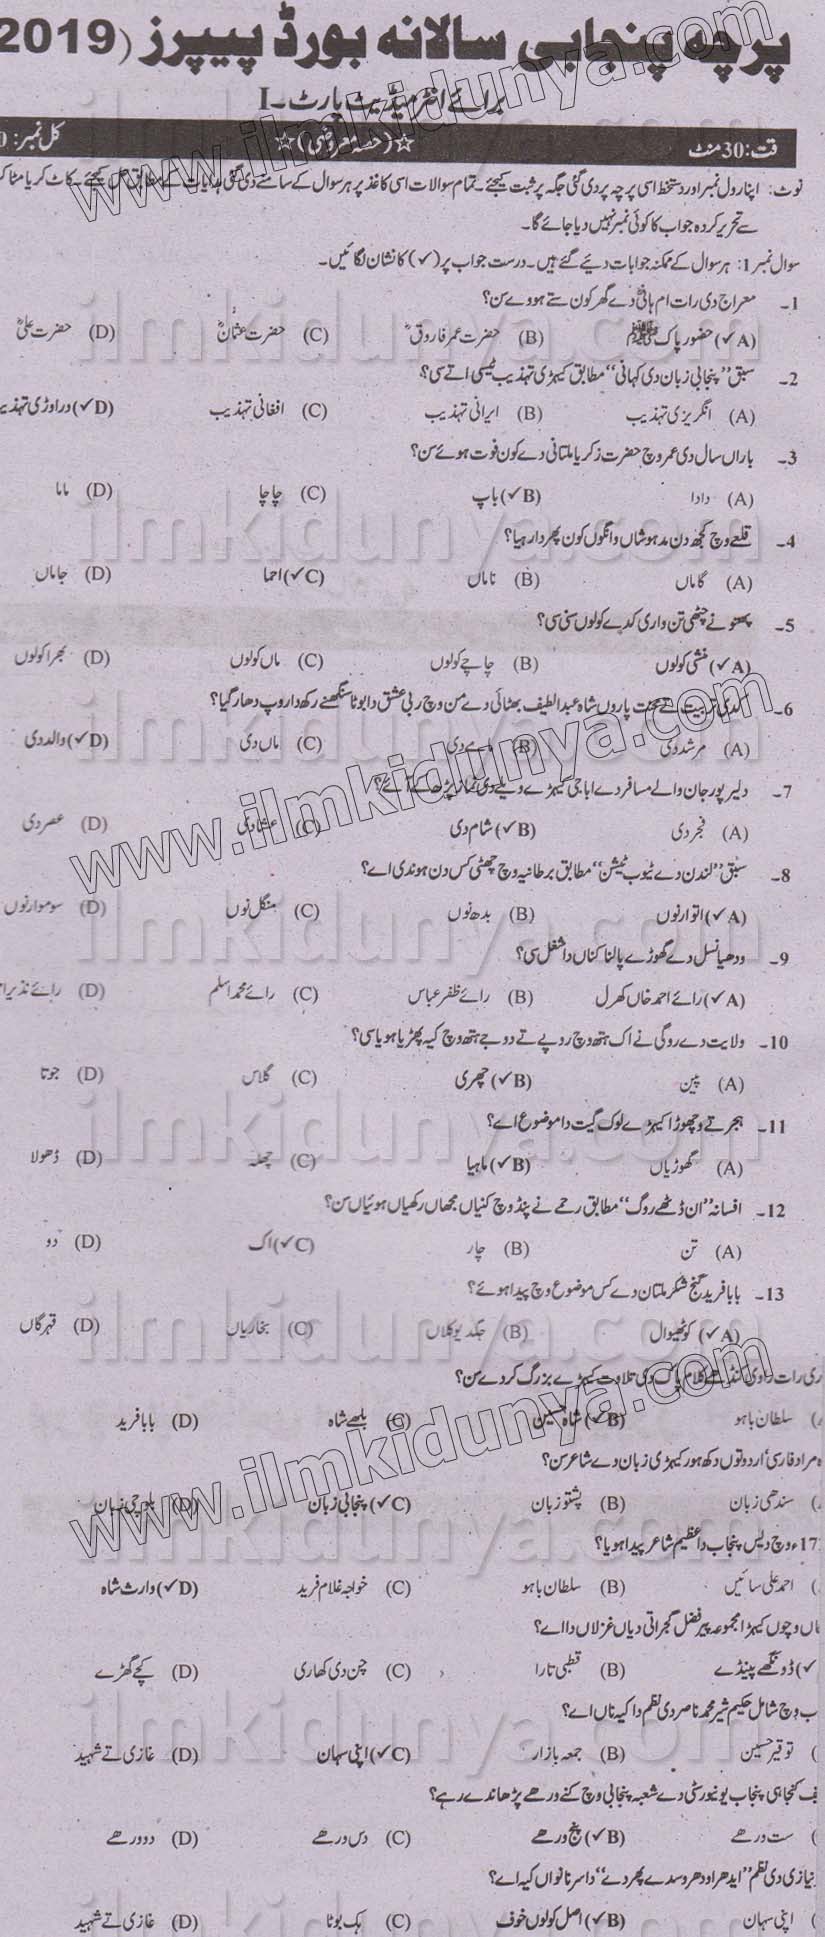 پرچہ پنجابی سالانہ بورڈ پیپرز (2019
برائے انٹرمیڈیٹ پارٹ ۔I
قت: 30 منٹ ☆(حصہ معروضی)☆ کل نمبر: 0
نوٹ: اپنا رول نمبر اور دستخط اسی پرچہ پر دی گئی جگہ پر ثبت کیجئے۔ تمام سوالات اسی کاغذ پر ہر سوال کے سامنے دی گئی ہدایات کے مطابق حل کیجئے۔ کاٹ کر یا مٹا کر
سے تحریر کردہ جواب کا کوئی نمبر نہیں دیا جائے گا۔
سوال نمبر 1: ہر سوال کے ممکنہ جوابات دیئے گئے ہیں۔ درست جواب پر (✓) کا نشان لگائیں۔
1۔ معراج دی رات ام ہانیؓ دے گھر کون ستے ہووے سن؟
(A✓) حضور پاک ﷺ (B) حضرت عمر فاروقؓ (C) حضرت عثمانؓ (D) حضرت علیؓ
2۔ سبق ”پنجابی زبان دی کہانی“ مطابق کیہڑی تہذیب ٹیسی اتے سی؟
(A) انگریزی تہذیب (B) ایرانی تہذیب (C) افغانی تہذیب (D✓) دراوڑی تہذیب
3۔ باراں سال دی عمر وچ حضرت زکریا ملتانی دے کون فوت ہوئے سن؟
(A) دادا (B✓) باپ (C) چاچا (D) ماما
4۔ قلعے وچ کجھ دن مدہوشاں وانگوں کون پھردا رہیا؟
(A) گاماں (B) ناماں (C✓) احما (D) جاماں
5۔ پھتو نے چٹھی تن واری کدے کولوں سنی سی؟
(A✓) منشی کولوں (B) چاچے کولوں (C) ماں کولوں (D) بھرا کولوں
6۔ کدی تربیت تے محنت پاروں شاہ عبدالطیف بھٹائی دے من وچ ربی عشق دا بوٹا سنگھنے رکھ دا روپ دھار گیا؟
(A) مرشد دی (B) دی (C) ماں دی (D✓) والد دی
7۔ دلیر پور جان والے مسافر دے ابا جی کیہڑے ویلے دی نماز پڑھ کے آئے؟
(A) فجر دی (B✓) شام دی (C) عشا دی (D) عصر دی
8۔ سبق ”لندن دے ٹیوب ٹیشن“ مطابق برطانیہ وچ چھٹی کس دن ہوندی اے؟
(A✓) اتوار نوں (B) بدھ نوں (C) منگل نوں (D) سوموار نوں
9۔ ودھیا نسل دے گھوڑے پالنا کناں دا شغل سی؟
(A✓) رائے احمد خاں کھرل (B) رائے ظفر عباس (C) رائے محمد اسلم (D) رائے نذیر ا
10۔ ولایت دے روگی نے اک ہتھ وچ روپے تے دوجے ہتھ وچ کیہ پھڑیا ہویا سی؟
(A) پین (B✓) چھری (C) گلاس (D) جوتا
11۔ ہجر تے وچھوڑا کیہڑے لوک گیت دا موضوع اے؟
(A) گھوڑیاں (B✓) ماہیا (C) چھلہ (D) ڈھولا
12۔ افسانہ ”ان ڈٹھے روگ“ مطابق رحمے نے پنڈ وچ کنیاں مجھاں رکھیاں ہوئیاں سن؟
(A) تن (B) چار (C✓) اک (D) دو
13۔ بابا فرید گنج شکر ملتان دے کس موضوع وچ پیدا ہوئے؟
(A✓) کوٹھیوال (B) جگد یو کلاں (C) بخاریاں (D) قہرگاں
ری رات راوی کنڈھے کلام پاک دی تلاوت کیہڑے بزرگ کردے سن؟
سلطان باہو (B✓) شاہ حسین (C) بلھے شاہ (D) بابا فرید
ہ مراد فارسی‘ اردو توں دکھ ہور کیہڑی زبان دے شاعر سن؟
سندھی زبان (B) پشتو زبان (C✓) پنجابی زبان (D) بلوچی زبان
17ء وچ دیس پنجاب دا عظیم شاعر پیدا ہویا؟
احمد علی سائیں (B) سلطان باہو (C) خواجہ غلام فرید (D✓) وارث شاہ
اں وچوں کیہڑا مجموعہ پیر فضل گجراتی دیاں غزلاں دا اے؟
✓) ڈونگھے پینڈے (B) قطبی تارا (C) چن دی کھاری (D) کچے گھڑے
ب وچ شامل حکیم شیر محمد ناصر دی نظم دا کیہ ناں اے؟
توقیر حسین (B) جمعہ بازار (C✓) اپنی سہان (D) غازی تے شہید
ف کنجاہی پنجاب یونیورسٹی دے شعبہ پنجابی وچ کنے ورھے پڑھاندے رہے؟
ست ورھے (B✓) پنج ورھے (C) دس ورھے (D) دو ورھے
نیازی دی نظم ”ایدھر اودھر وسدے پھردے“ دا سرنانواں کیہ اے؟
اپنی سہان (B✓) اصل کولوں خوف (C) بک بوٹا (D) غازی تے شہید
www.ilmkidunya.com
www.ilmkidunya.com
www.ilmkidunya.com
ilmkidunya.com
ilmkidunya.com
ilmkidunya.com
ilmkidunya.com
ilmkidunya.com
ilmkidunya.com
ilmkidunya.com
ilmkidunya.com
ilmkidunya.com